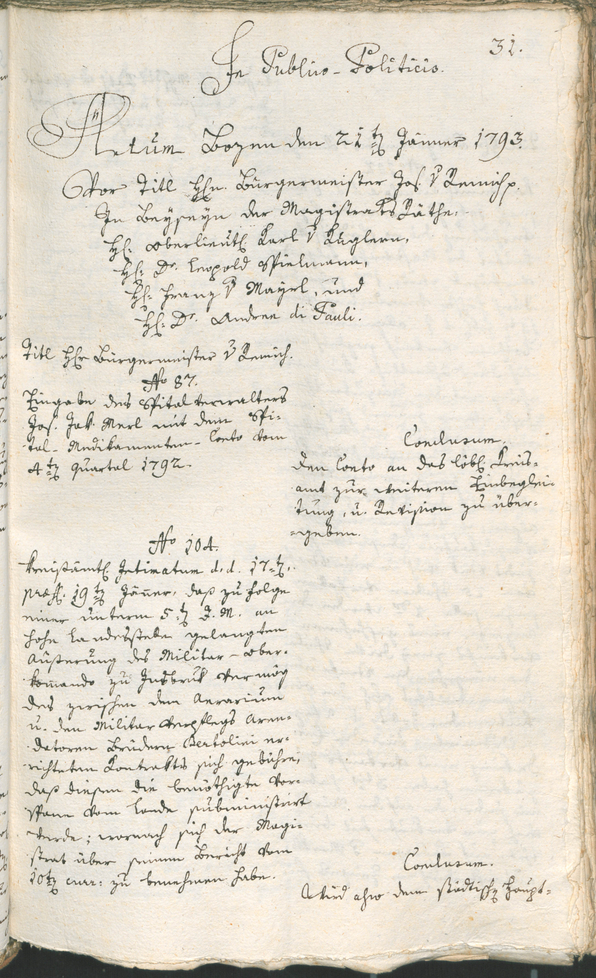 31.
In Publico-Politicis.
Actum Bozen den 21tn Jänner 1793.
Vor Titl Hhn Bürgermeister Jos. v Remich p.
In Beyseyn der Magistrats Räthe,
Hh. Oberlieut. Karl v Kuglern,
Hh. Dr. Leopold Spielmann,
Hh. Franz v Mayrl, und
Hh. Dr. Andree di Pauli.
Titl Hhr Bürgermeister v Remich.
No 87.
Eingabe des Spitalverwalters
Jos. Jak. Merl mit dem Spi-
tal-Medikamenten-Conto vom
4tn Quartal 1792.
Conclusum.
Den Conto an das löbl. Kreis-
amt zur weiteren Einbeglei-
tung, u. Revision zu über-
geben.
No 104.
Kreisämtl. Intimatum d. d. 17tn,
præs. 19tn Jänner, daß zu Folge
einer unterm 5tn d. M. an
hohe Landesstelle gelangten
Äußerung des Militar-Ober-
kommando zu Insbruk vermög
des zwischen dem Aerarium
u. den Militar Verpflegs Aren-
datoren Brüdern Bertolini er-
richteten Kontrakts sich gebühre,
daß diesen die benöthigte Vor-
spann vom Lande subministrirt
werde; wornach sich der Magi-
strat über seinen Bericht vom
10tn curr: zu benehmen habe.
Conclusum.
Wird also dem städtisch Haupt-